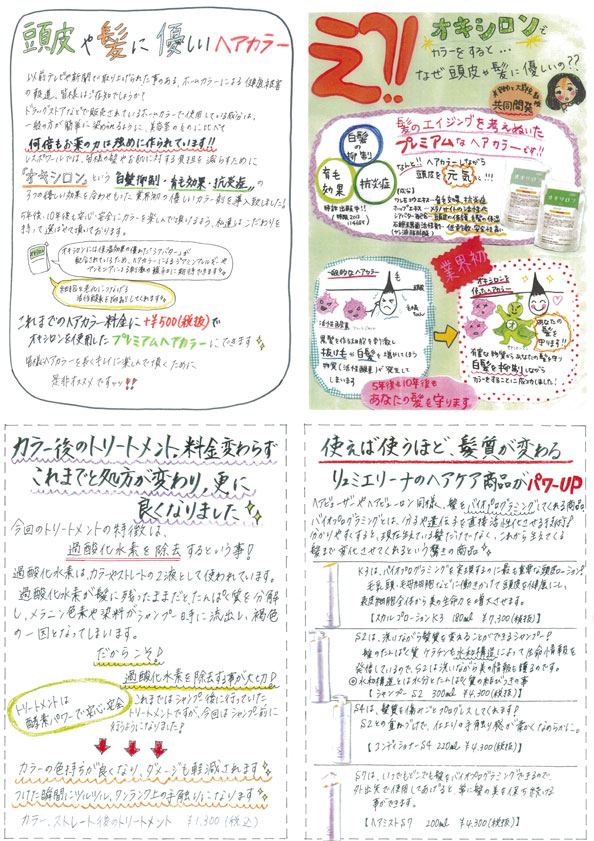 頭皮や髪に優しいヘアカラー
以前テレビや新聞で取り上げられた事のある、ホームカラーによる健康被害
の報道、皆様はご存知でしょうか?
ドラッグストアなどで販売されているホームカラーで使用している成分は、
一般の方が簡単に染められるように、美容室のものに比べて
何倍もお薬の力は強めに作られています!!
では、皆様の髪やお肌に対する負担を減らすために
『オキシロン』という白髪抑制・育毛効果・抗炎症の
3つの優しい効果を合わせもった業界初の優しいカラー剤を導入致しました!
5年後、10年後も安心・安全にカラーを楽しんで頂けるよう、私達はこだわりを
持って選ばせて頂いております。
オキシロンには保湿効果の優れた「シアバター」が
配合されているため、ヘアカラーによる
これまでのヘアカラー料金に+¥500(税抜)で
オキシロンを使用したプレミアムヘアカラーにできます
皆様にヘアカラーを長くキレイに楽しんで頂くために
是非オススメですッッ!!
え?!
オキシロンで
カラーをすると…
なぜ頭皮や髪に優しいの??
共同開発
髪のエイジングを考えぬいた
プレミアムなヘアカラーです!!
白髪の抑制
育毛効果
抗炎症
なんと!!ヘアカラーしながら
頭皮を元気に!!!
オキシロン
業界初
一般的なヘアカラー
毛
活性酸素
抜け毛や白髪を増やしてしまう
物質(活性酸素)が発生して
しまいます
オキシロンを
使ったヘアカラー
あなたの
髪を
守ります!!
有害な物質からあなたの髪を守り
白髪を抑制しながら
カラーをすることに成功しました!
5年後も10年後も
あなたの髪を守ります
カラー後のトリートメント、料金変わらず
これまでと処方が変わり、更に
良くなりました
今回のトリートメントの特徴は、
過酸化水素を除去するという事!
過酸化水素は、カラーやストレートの2液として使われています。
過酸化水素が髪に残ったままだと、たんぱく質を分解
し、メラニン色素や染料がシャンプー時に流出し、褪色
の一因となってしまいます。
だからこそ!
過酸化水素を除去する事が大切!
トリートメントは
酵素パワーで安心・安全
これまではシャンプー後に行っていた
トリートメントですが、今回はシャンプー前に
行うようになりました!
カラーの色持ちが良くなり、ダメージも軽減されます
つけた瞬間にツルツル、ワンランク上の手触りになります
カラー、ストレート後のトリートメント ¥1,300(税込)
使えば使うほど、髪質が変わる
リュミエリーナのヘアケア商品がパワーUP
ヘアビューザーやヘアビューロン同様、髪をバイオプログラミングしてくれる商品。
バイオプログラミングとは、分子や遺伝子を直接活性化させる手助け!
分かりやすくすると、現在生えている髪だけでなく、これから生えてくる
髪まで変化させてくれるという驚きの商品
K3は、バイオプログラミングを実現するのに最も重要な頭皮ローション!
毛乳頭・毛母細胞などに働きかけて頭皮を健康にし、
表皮細胞全体から美の生命力を増大させます。
【スカルプローションK3 180ml ¥7,300(税抜)】
S2は、洗いながら髪質を変えることができるシャンプー!
髪のたんぱく質ケラチンを水和構造によって生命情報を
発信しているので、S2は洗いながら美の情報も護るのです。
◎水和構造とは水分とたんぱく質の結びつきの事
【シャンプーS2 300ml ¥4,300(税抜)】
S4は、髪質を傷めごとプログレスしてくれます!
S2との重ねづけで、仕上りの手触り感が驚くなめらかに。
【コンディショナーS4 220ml ¥4,300(税抜)】
S7は、いつでもどこでも髪をバイオプログラミングできるので、
外出先で使用してあげると、常に髪の美を保ち続ける
事ができます。
【ヘアミストS7 200ml ¥4,300(税抜)】